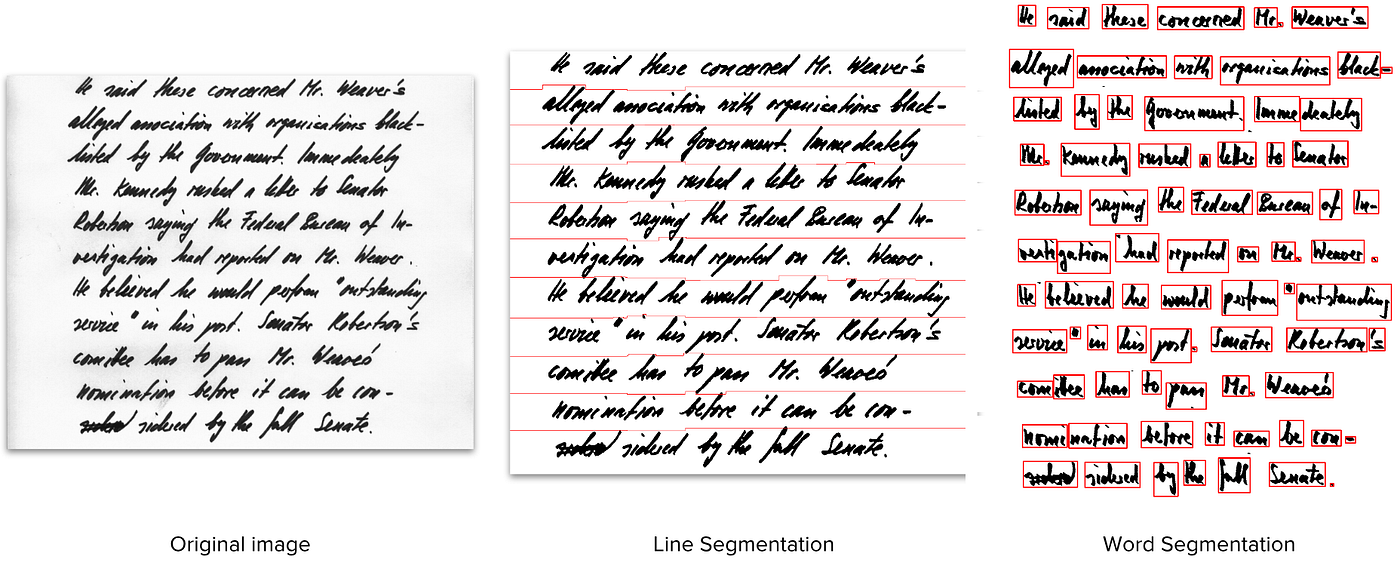 He said these concerned Mr. Weaver's
alleged association with organisations black-
listed by the Government. Immedeately
Mr. Kennedy rushed a letter to Senator
Robertson saying the Federal Bureau of In-
vestigation had reported on Mr. Weaver.
He believed he would perform "outstanding
service" in his post. Senator Robertson's
comittee has to pass Mr. Weaver's
nomination before it can be con-
sidered by the full Senate.
Original image
He said these concerned Mr. Weaver's
alleged association with organisations black-
listed by the Government. Immedeately
Mr. Kennedy rushed a letter to Senator
Robertson saying the Federal Bureau of In-
vestigation had reported on Mr. Weaver.
He believed he would perform "outstanding
service" in his post. Senator Robertson's
comittee has to pass Mr. Weaver's
nomination before it can be con-
sidered by the full Senate.
Line Segmentation
He said these concerned Mr. Weaver's
alleged association with organisations black-
listed by the Government. Immedeately
Mr. Kennedy rushed a letter to Senator
Robertson saying the Federal Bureau of In-
vestigation had reported on Mr. Weaver.
He believed he would perform "outstanding
service" in his post. Senator Robertson's
comittee has to pass Mr. Weaver's
nomination before it can be con-
sidered by the full Senate.
Word Segmentation